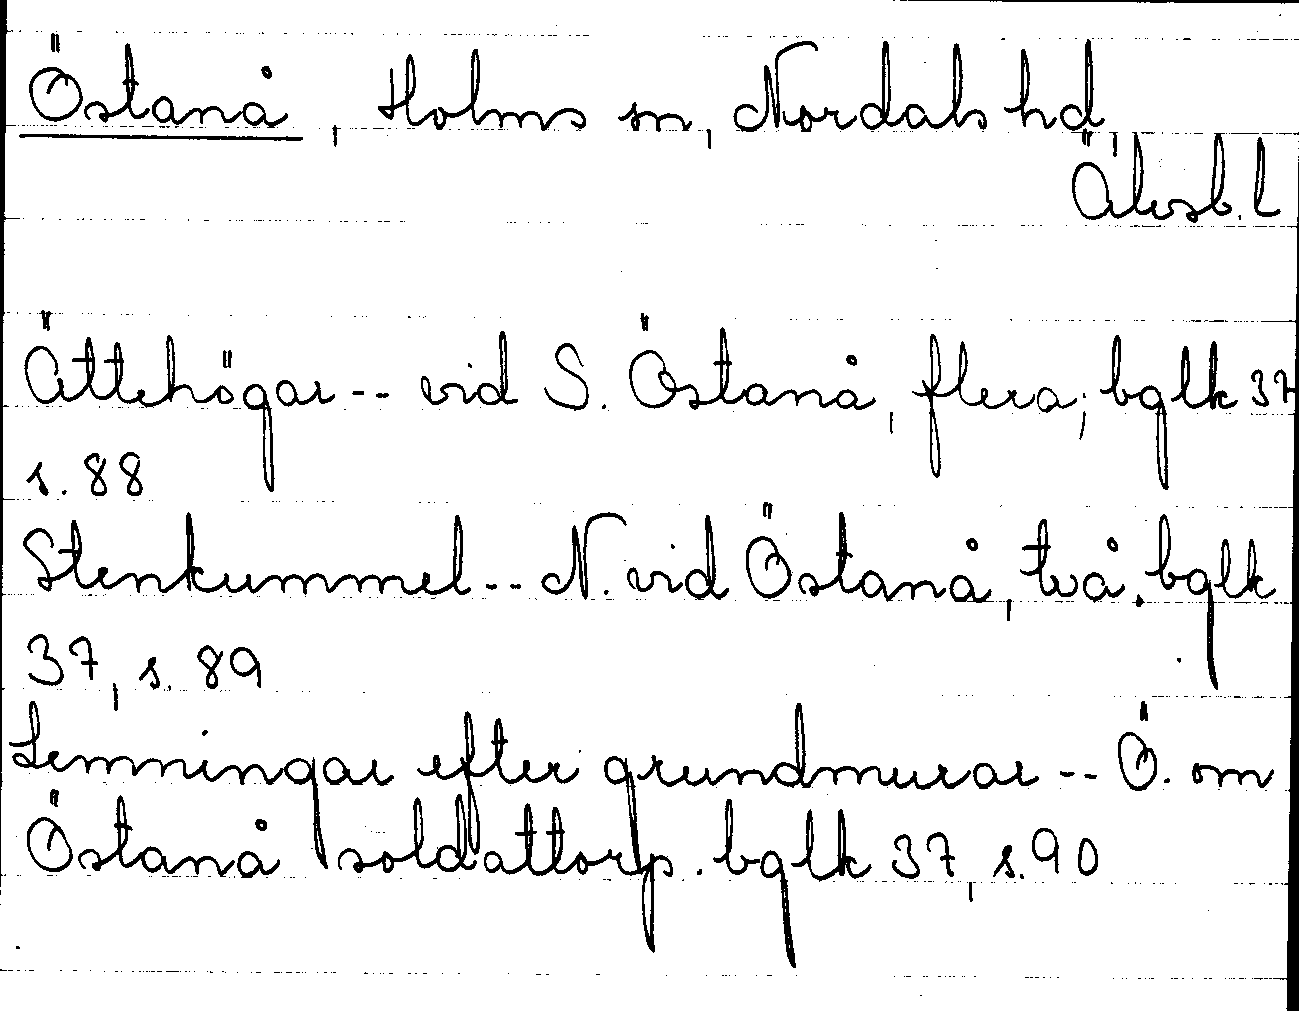 Östanå, Holms sn, Nordals hd,
Älvsb. l
Ättehögar -- vid S. Östanå, flera; bglk 37
s. 88
Stenkummel -- N. vid Östanå, två. bglk
37, s. 89
Lemningar efter grundmurar -- Ö. om
Östanå soldattorp. bglk 37, s. 90